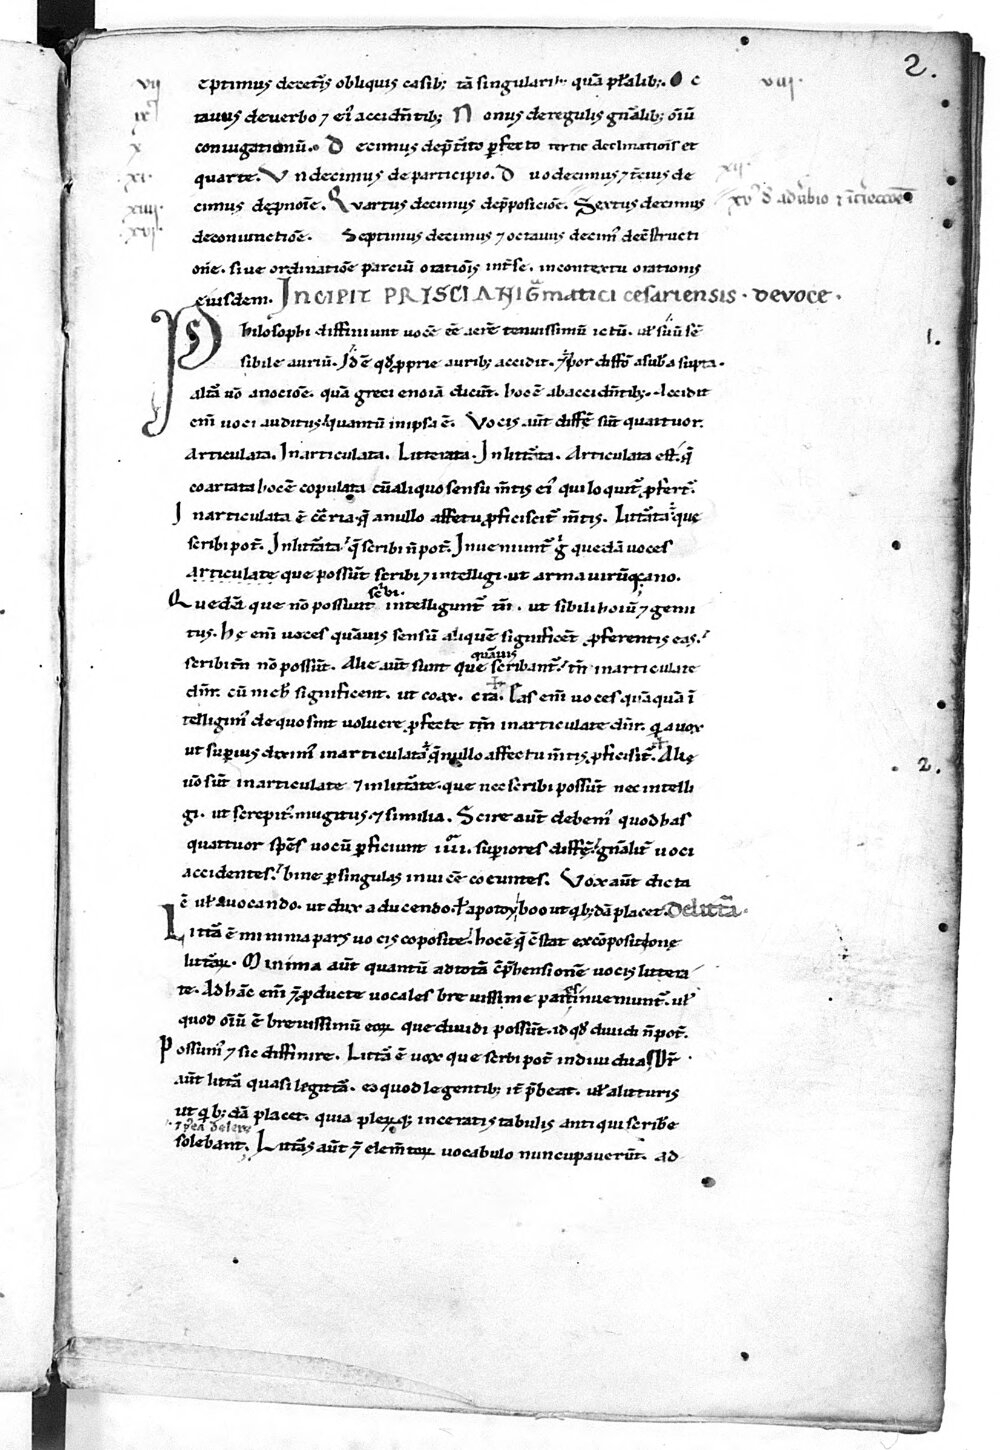 2.
vii eptimus de cet̄is obliquis casib; tā singularib quā pl̄alib;. O c viii.
ix tauus de uerbo ⁊ ei' accid̄ntib; N onus de regulis gn̄alib; om̄iū
x coniugationū. D ecimus de p̄t̄ito ꝑfecto tertie declinationis et
xi. quarte. V ndecimus de participio. D uodecimus ⁊ t̄cius de xii.
xiiii. cimus de ꝓnoīe. Q uartus decimus de p̄posicioē. Sextus decimus xv' d' aduerbio ⁊ int̄iectioē
xvi. de coniunctioē. Septimus decimus ⁊ octauus decim' de c̄structi
one. siue ordinatioē parciū orationis int̄ se. in contextu orationis
eiusdem. INCIPIT PRISCIANI Gmatici cesariensis. De voce.
Philosophi diffiniunt uocē eē aerē tenuissimū ictū. uł suū sē 1.
sibile auriū. id ē qd ꝓprie aurib; accidit. ⁊ ē p'or diffō a sub'a supta.
alt̄a uō a nocioē. quā greci enoiā dicunt. hoc ē ab accid̄ntib;. Accidit
em̄ uoci auditus quantū in ipsa ē. Vocis aūt diffē sūt quattuor.
Articulata. Inarticulata. Litterata. Inlitt̄ata. Articulata est. q̄
coartata hoc ē copulata cū aliquo sensu m̄tis ei' qui loquit̄ ꝓfert̄.
Inarticulata ē c̄t̄ria. q̄ a nullo affectu ꝓficiscit̄ m̄tis. Litt̄ata ē que
scribi pot̄. Inlitt̄ata q̄ scribi n̄ pot̄. Inueniunt̄ g' quedā uoces
articulate que possūt scribi ⁊ intelligi. ut arma uirūq; cano.
Quedā que nō possunt scribi. intelligunt̄ tn̄. ut sibili hoīū ⁊ gemi
tus. hę em̄ uoces quāuis sensū aliquē significēt ꝓferentis eas.
scribi tn̄ nō possūt. Alie aūt sunt que quāuis scribant̄. tn̄ inarticulate
dn̄r. cū nich' significent. ut coax. cra. has em̄ uoces quāquā ī
telligim' de quo sint uolucre ꝓfecte tn̄ inarticulate dn̄r. q̄a uox
ut superius dixim' inarticulata ē q̄ nullo affectu m̄tis ꝓficisit̄. Alię
uō sūt inarticulate ⁊ inlitt̄ate. que nec scribi possūt nec intelli 2.
gi. ut screpit'. mugitus. ⁊ similia. Scire aūt debem' quod has
quattuor sp̄es uocū ꝑficiunt iiii. superiores diffē. gn̄alit̄ uoci
accidentes. bine ꝑ singulas inuicē coeuntes. Vox aūt dicta
ē uł a uocando. ut dux a ducendo. ł apo toy boo ut q'b;dā placet. De litt̄a.
Litt̄a ē minima pars uocis composite. hoc ē q̄ c̄stat ex cōpositione
litt̄aꝝ. Minima aūt quantū ad totā c̄p̄hensionē uocis littera
te. Ad hāc em̄ ⁊ ꝓducte uocales breuissime partes inueniunt̄. uł
quod om̄iū ē breuissimū eoꝝ que diuidi possūt. id qd diuidi n̄ pot̄.
Possum' ⁊ sic diffinire. Litt̄a ē uox que scribi pot̄ indiuidua. Dr̄
aūt litt̄a quasi legitt̄a. eo quod legentib; it̄ p̄beat. uł a lituris
ut q'b;dā placet. quia pleꝝq; in ceratis tabulis antiqui scribe
solebant. Litt̄as aūt ⁊ elem̄toꝝ uocabulo nuncupauerūt. ad